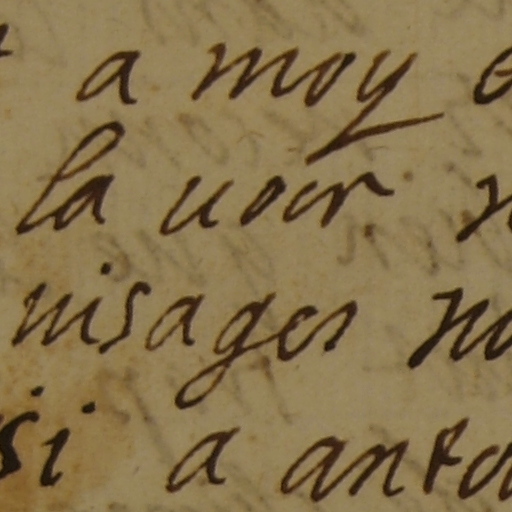 a moy
la uoir
uisages
si a anto